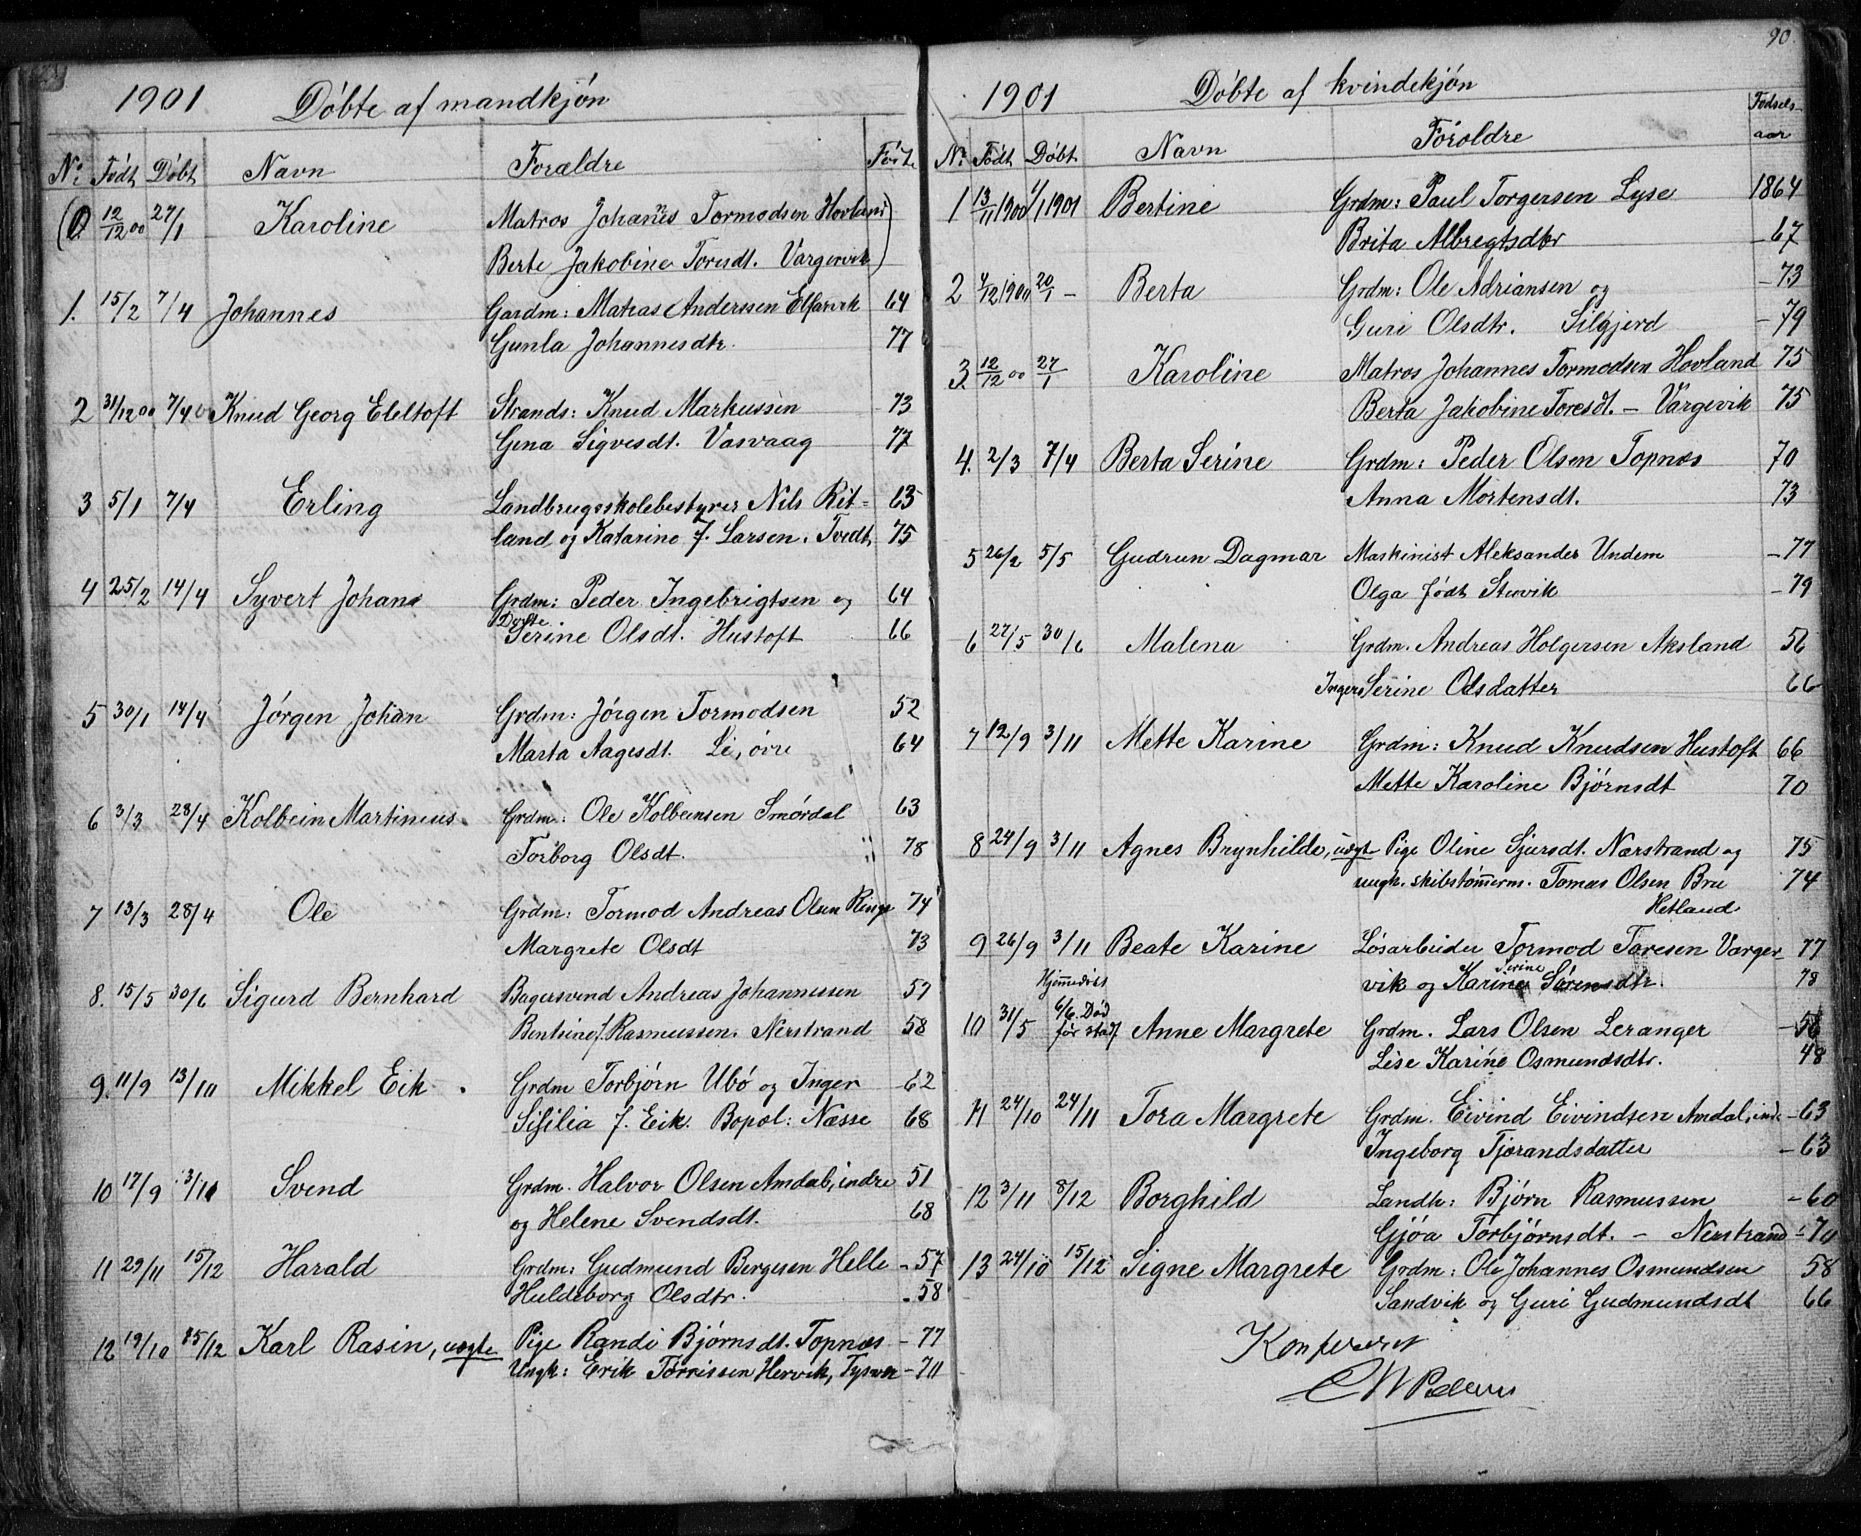 1901 Döbte af mandkjön
No Födt Döbt Navn Forældre Födte
(0. 12/12 00 27/1 Karoline Matros Johannes Tormodsen Hovland
Berte Jakobine Toresdt. Vargervik)
1. 15/2 7/4 Johannes Gardm: Matias Anderssen Elfarvik 64
Gunla Johannesdtr. 77
2 31/12 00 7/4 Knud Georg Eleltoft Strands: Knud Markussen - 73
Gina Sigvesdt. Vasvaag 77
3 5/1 7/4 Erling Landbrugsskolebestyrer Nils Rit- 63
land og Katarine f. Larsen. Tvedt 75
4 25/2 14/4 Syvert Johan Grdm: Peder Ingebrigtsen og 64
Dorte
Serine Olsdt. Hustoft 66
5 30/1 14/4 Jörgen Johan Grdm: Jörgen Tormodsen 52
Marta Aagesdt. Li, övre 64
6 3/3 28/4 Kolbein Martinius Grdm: Ole Kolbeinsen Smördal 63
Torborg Olsdt. 78
7 13/3 28/4 Ole Grdm: Tormod Andreas Olsen Ringe 74
Margrete Olsdt 73
8. 15/5 30/6 Sigurd Bernhard Bagersvend Andreas Johannessen 57
f. Rasmussen. Nerstrand 58
9. 11/9 13/10 Mikkel Eik. Grdm Torbjörn Ubö og Inger - 62
Sisilia f. Eik. Bopæl: Næsse 68
10 17/9 3/11 Svend Grdm. Halvor Olsen Amdal, indre 51
og Helene Svendsdt. 68
11 29/11 15/12 Harald Grdm: Gudmund Bergesen Helle - 57
Huldeborg Olsdtr. - 58
12 19/10 25/12 Karl Rasin, uægte Pige Randi Björnsdt. Topnæs - 77
Ungk: Erik Torrissen Hervik, Tysvær - 711
90.
1901 Döbte af kvindekjön
No Födt Döbt Navn Foröldre Födsels-
aar
1 13/11 1900 1/1 1901 Bertine Grdm: Paul Torgersen Lyse 1864
Brita Albregtsdtr - 67
2 4/12 1900 20/1 - Berta Grdm: Ole Adriansen og - 73
Guri Olsdtr. Silgjerd - 79
3 12/12 00 27/1 Karoline Matros Johannes Tormodsen Hovland 75
Berta Jakobine Toresdt. - Vargevik 75
4. 2/3 7/4 Berta Serine Grdm: Peder Olsen Topnæs 70
Anna Mortensdt. 73
5 26/2 5/5 Gudrun Dagmar Maskinist Aleksander Undem - 77
Olga födt Stuvik - 79
6 27/5 30/6 Malena Grdm. Andreas Holgersen Aksland 56
Inger Serine Olsdatter 66
7 12/9 3/11 Mette Karine Grdm: Knud Knudsen Hustoft 66
Mette Karoline Björnsdt 70
8 24/9 3/11 Agnes Brynhilde, uægt Pige Oline Sjursdt. Nærstrand og 75
ungk. skibstömerm. Tomas Olsen Bru 74
Hetland
9 26/9 3/11 Beate Karine Lösarbeider Tormod Toresen Varger- 77
Serine
vik og Karine Sörensdtr. 78
Hjemmedöbt
10 31/5 6/6. Död Anne Margrete Grdm. Lars Olsen Leranger - 56
för stadf
Lise Karine Osmundsdtr. 48
11 24/10 24/11 Tora Margrete Grdm. Eivind Eivindsen Amdal, ind. - 63
Ingeborg Tjerandsdatter - 63
12 3/11 8/12 Borghild Landh: Björn Rasmussen - 60
Gjöa Torbjörnsdt. - Nerstrand - 70
13 24/10 15/12 Signe Margrete Grdm: Ole Johannes Osmundsen 58
Sandvik og Guri Gudmundsdt 66
Konfereret